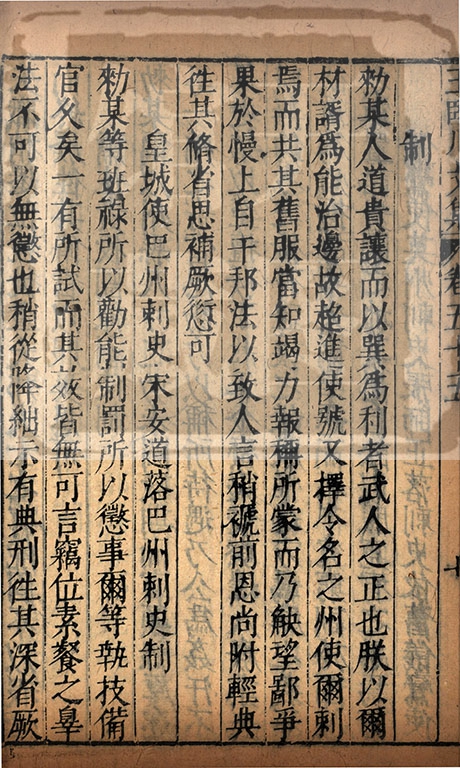 王臨川文集 卷五十五 十
制
勑某人道貴讓而以巽爲利者武人之正也朕以爾
材諝爲能治邊故超進使號又擇令名之州使爾刺
焉而共其舊服當知竭力報稱所蒙而乃觖望鄙爭
果於慢上自干邦法以致人言稍褫前恩尚附輕典
徃其脩省思補厥愆可
皇城使巴州刺史宋安道落巴州刺史制
勑某等班祿所以勸能制罰所以懲事爾等執技備
官久矣一有所試而其效皆無可言竊位素餐之辠
法不可以無懲也稍從降絀示有典刑徃其深省厥